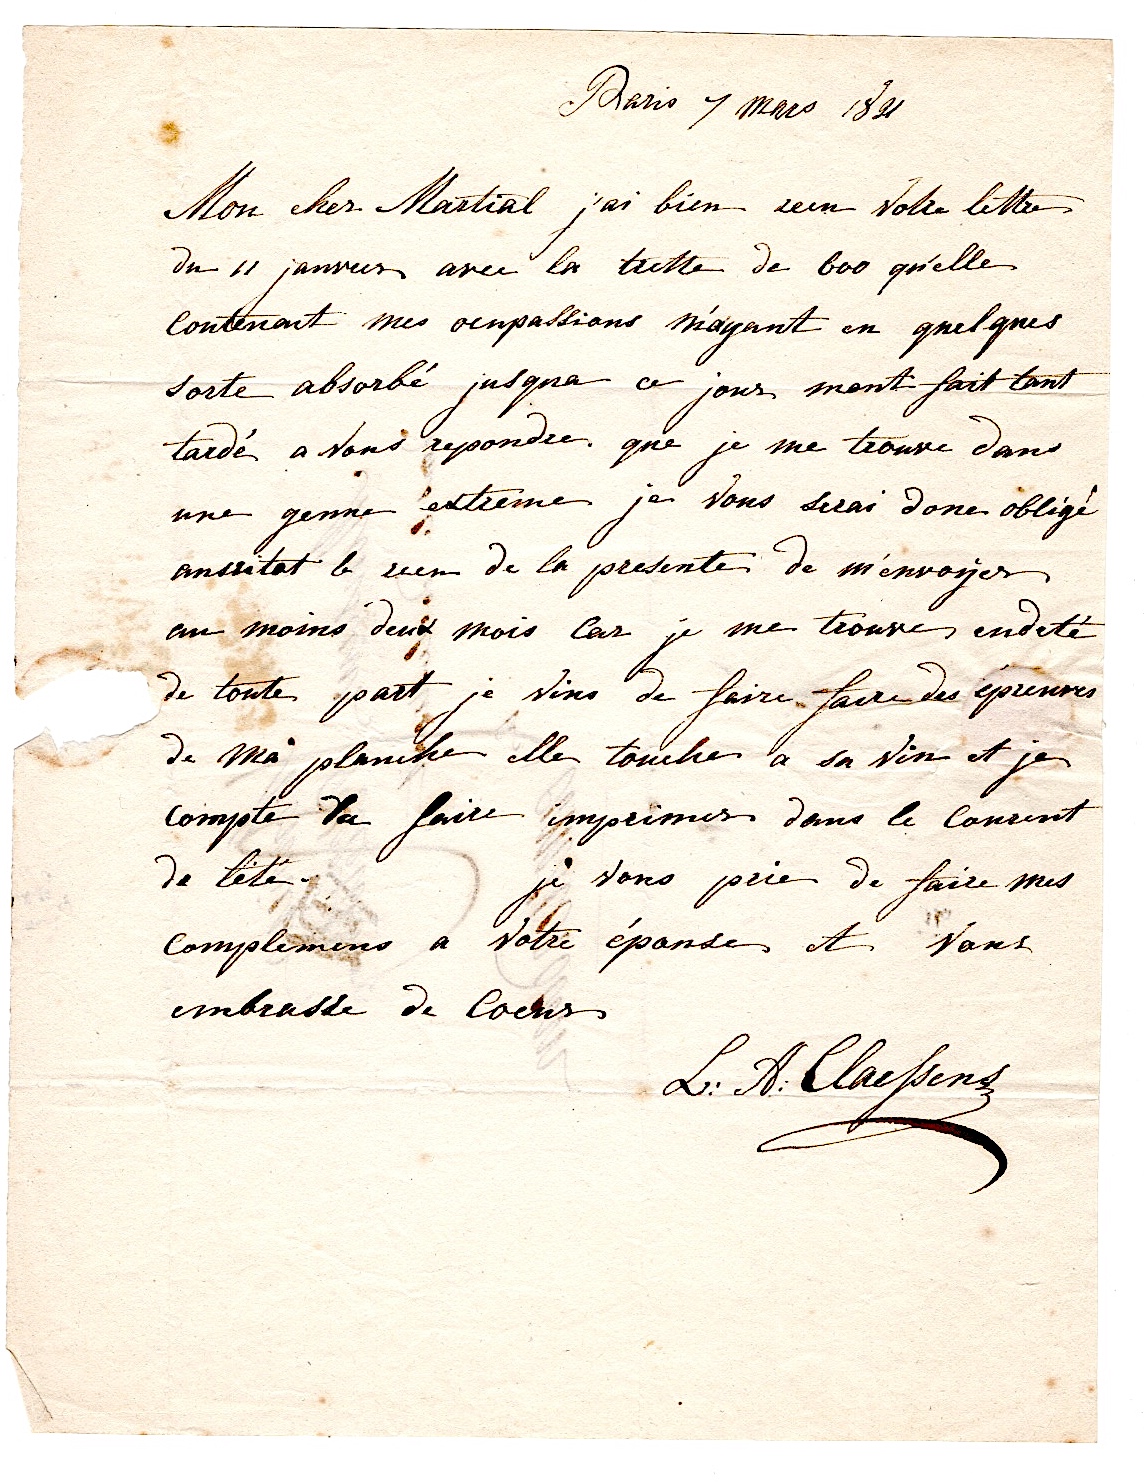 Paris 7 mars 1821
Mon cher Martial j'ai bien recu votre lettre
du 11 janvier avec la trette de 600 qu'elle
contenait mes ocupassions m'ayant en quelques
sorte absorbé jusqua ce jour mont fait tant
tardé a vous repondre. que je me trouve dans
une genne extreme je vous serai donc obligé
aussitot le recu de la presente de m'envoyer
au moins deux mois car je me trouve endeté
de toute part je vins de faire faire des épreuves
de ma planche elle touche a sa vin et je
compte la faire imprimer dans le courent
de l'été. je vous prie de faire mes
complemens a votre épouse et vous
embrasse de coeur
L: A: Claessens